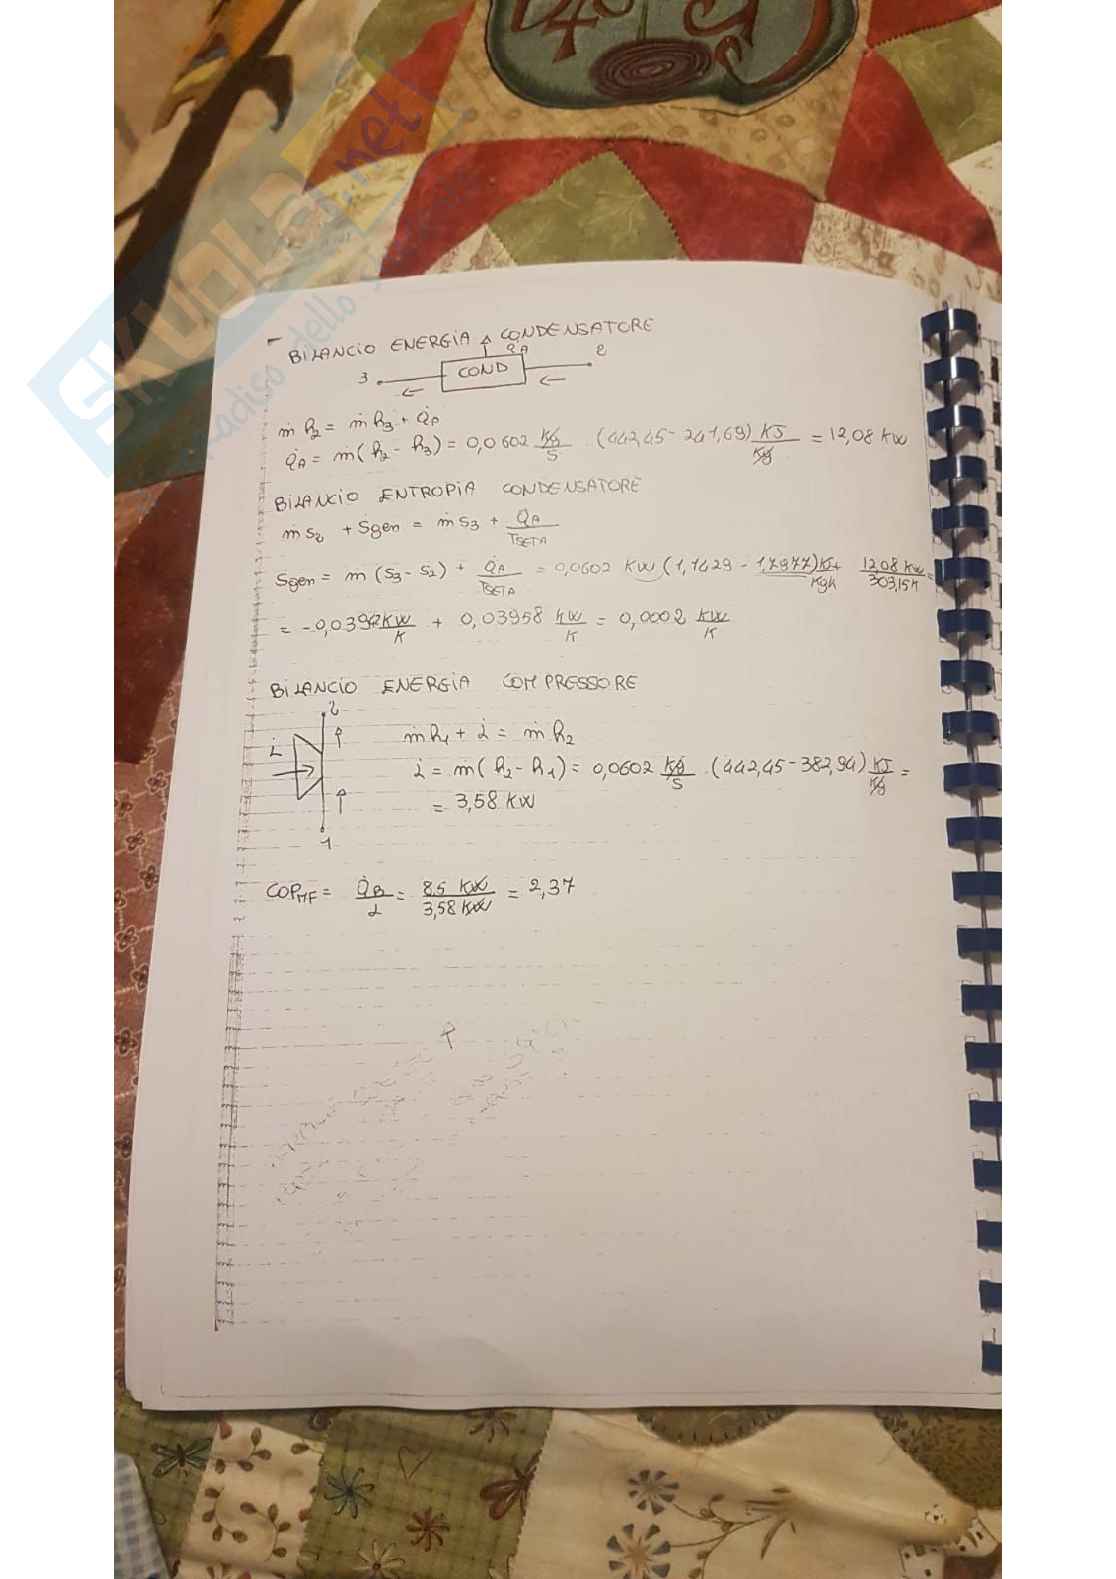 - BILANCIO ENERGIA CONDENSATORE
Q̇A
3 COND 2
ṁ h2 = ṁ h3 + Q̇A
Q̇A = ṁ(h2 - h3) = 0,0602 Kg/S · (442,45 - 241,69) KJ/Kg = 12,08 KW
BILANCIO ENTROPIA CONDENSATORE
ṁ S2 + Sgen = ṁ S3 + Q̇A/TSETA
Sgen = ṁ (S3 - S2) + Q̇A/TSETA = 0,0602 KW (1,1429 - 1,7977) KJ/KgK + 12,08 KW/303,15K =
= -0,0392 KW/K + 0,03958 KW/K = 0,0002 KW/K
BILANCIO ENERGIA COMPRESSORE
2
L̇
1
ṁ h1 + L̇ = ṁ h2
L̇ = ṁ(h2 - h1) = 0,0602 Kg/S · (442,45 - 382,94) KJ/Kg =
= 3,58 KW
COPMF = Q̇B/L̇ = 8.5 KW/3,58 KW = 2,37
SKUOLA.net